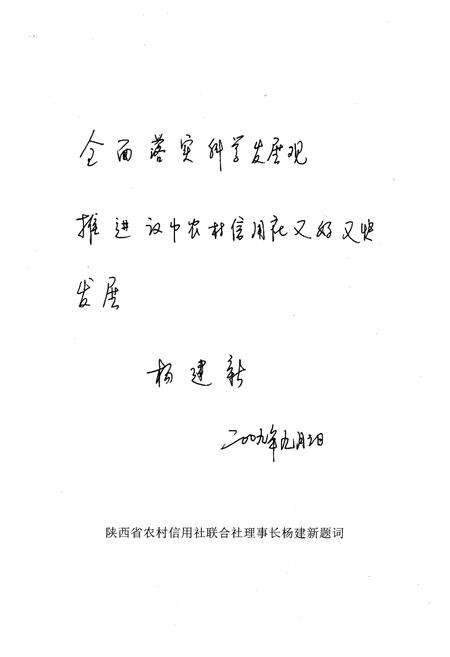 全面落实科学发展观
推进汉中农村信用社又好又快
发展
杨建新
二〇〇九年九月日
陕西省农村信用社联合社理事长杨建新题词